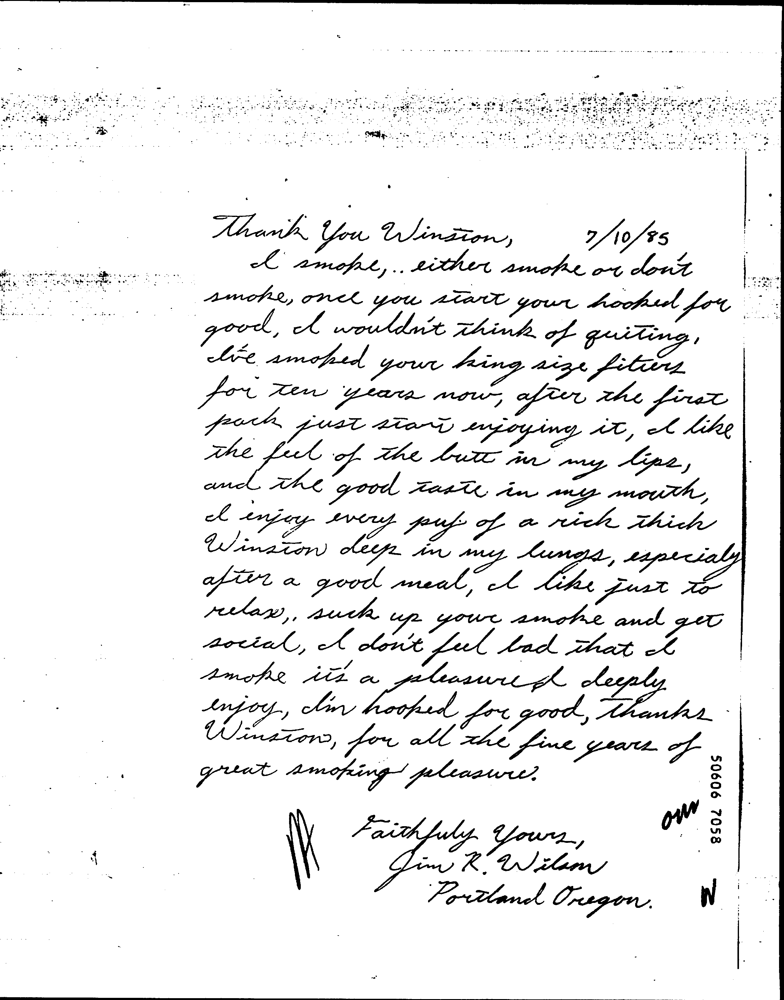 Thank You Winston, 7/10/85
I smoke,.. either smoke or don't
smoke, once you start your hooked for
good, I wouldn't think of quiting,
I've smoked your king size filters
for ten years now, after the first
pack just start enjoying it, I like
the feel of the butt in my lips,
and the good taste in my mouth,
I enjoy every puf of a rich thick
Winston deep in my lungs, especialy
after a good meal, I like just to
relax,. suck up your smoke and get
social, I don't feel bad that I
smoke it's a pleasure I deeply
enjoy, I'm hooked for good, thanks
Winston, for all the fine years of
great smoking pleasure.
Faithfuly Yours,
Jim R. Wilson
Portland Oregon.
50606 7058
W